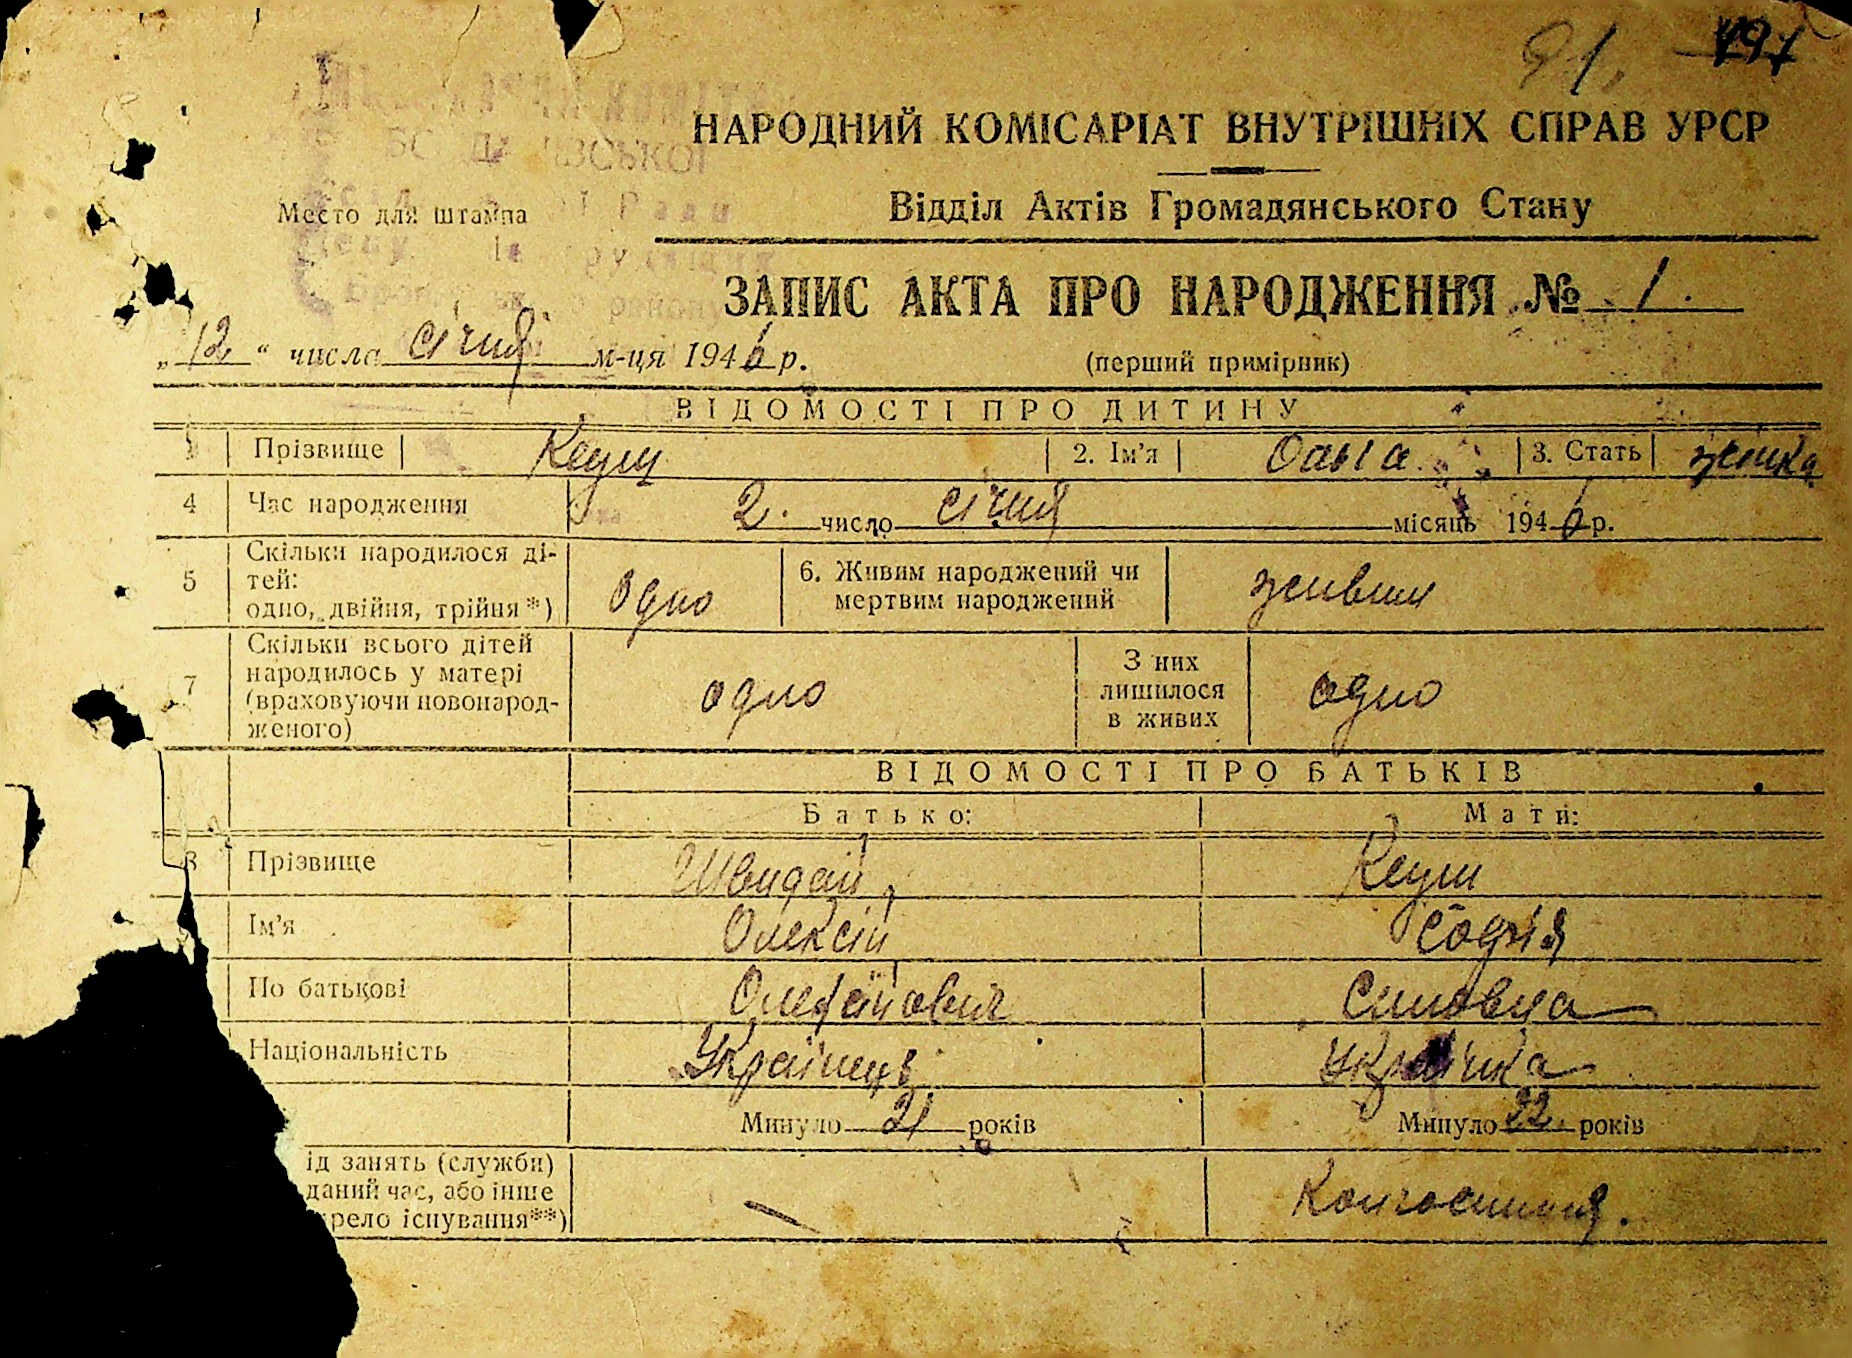 91. 197
НАРОДНИЙ КОМІСАРІАТ ВНУТРІШНІХ СПРАВ УРСР
Место для штампа
Відділ Актів Громадянського Стану
ЗАПИС АКТА ПРО НАРОДЖЕННЯ № 1.
„12“ числа січня м-ця 1946 р.
(перший примірник)
ВІДОМОСТІ ПРО ДИТИНУ
Прізвище Кеуш 2. Ім'я Ольга. 3. Стать жінка
4 Час народження 2. число січня місяць 1946 р.
5 Скільки народилося ді-
тей:
одно, двійня, трійня*) одно 6. Живим народжений чи
мертвим народжений живим
7 Скільки всього дітей
народилось у матері
(враховуючи новонарод-
женого) одно З них
лишилося
в живих одно
ВІДОМОСТІ ПРО БАТЬКІВ
Батько: Мати:
8 Прізвище Швидай Кеуш
Ім'я Олексій Софія
По батькові
Національність Українець Українка
Минуло 21 років Минуло 22. років
ід занять (служби)
даний час, або інше
рело існування**) — Колгоспниця.